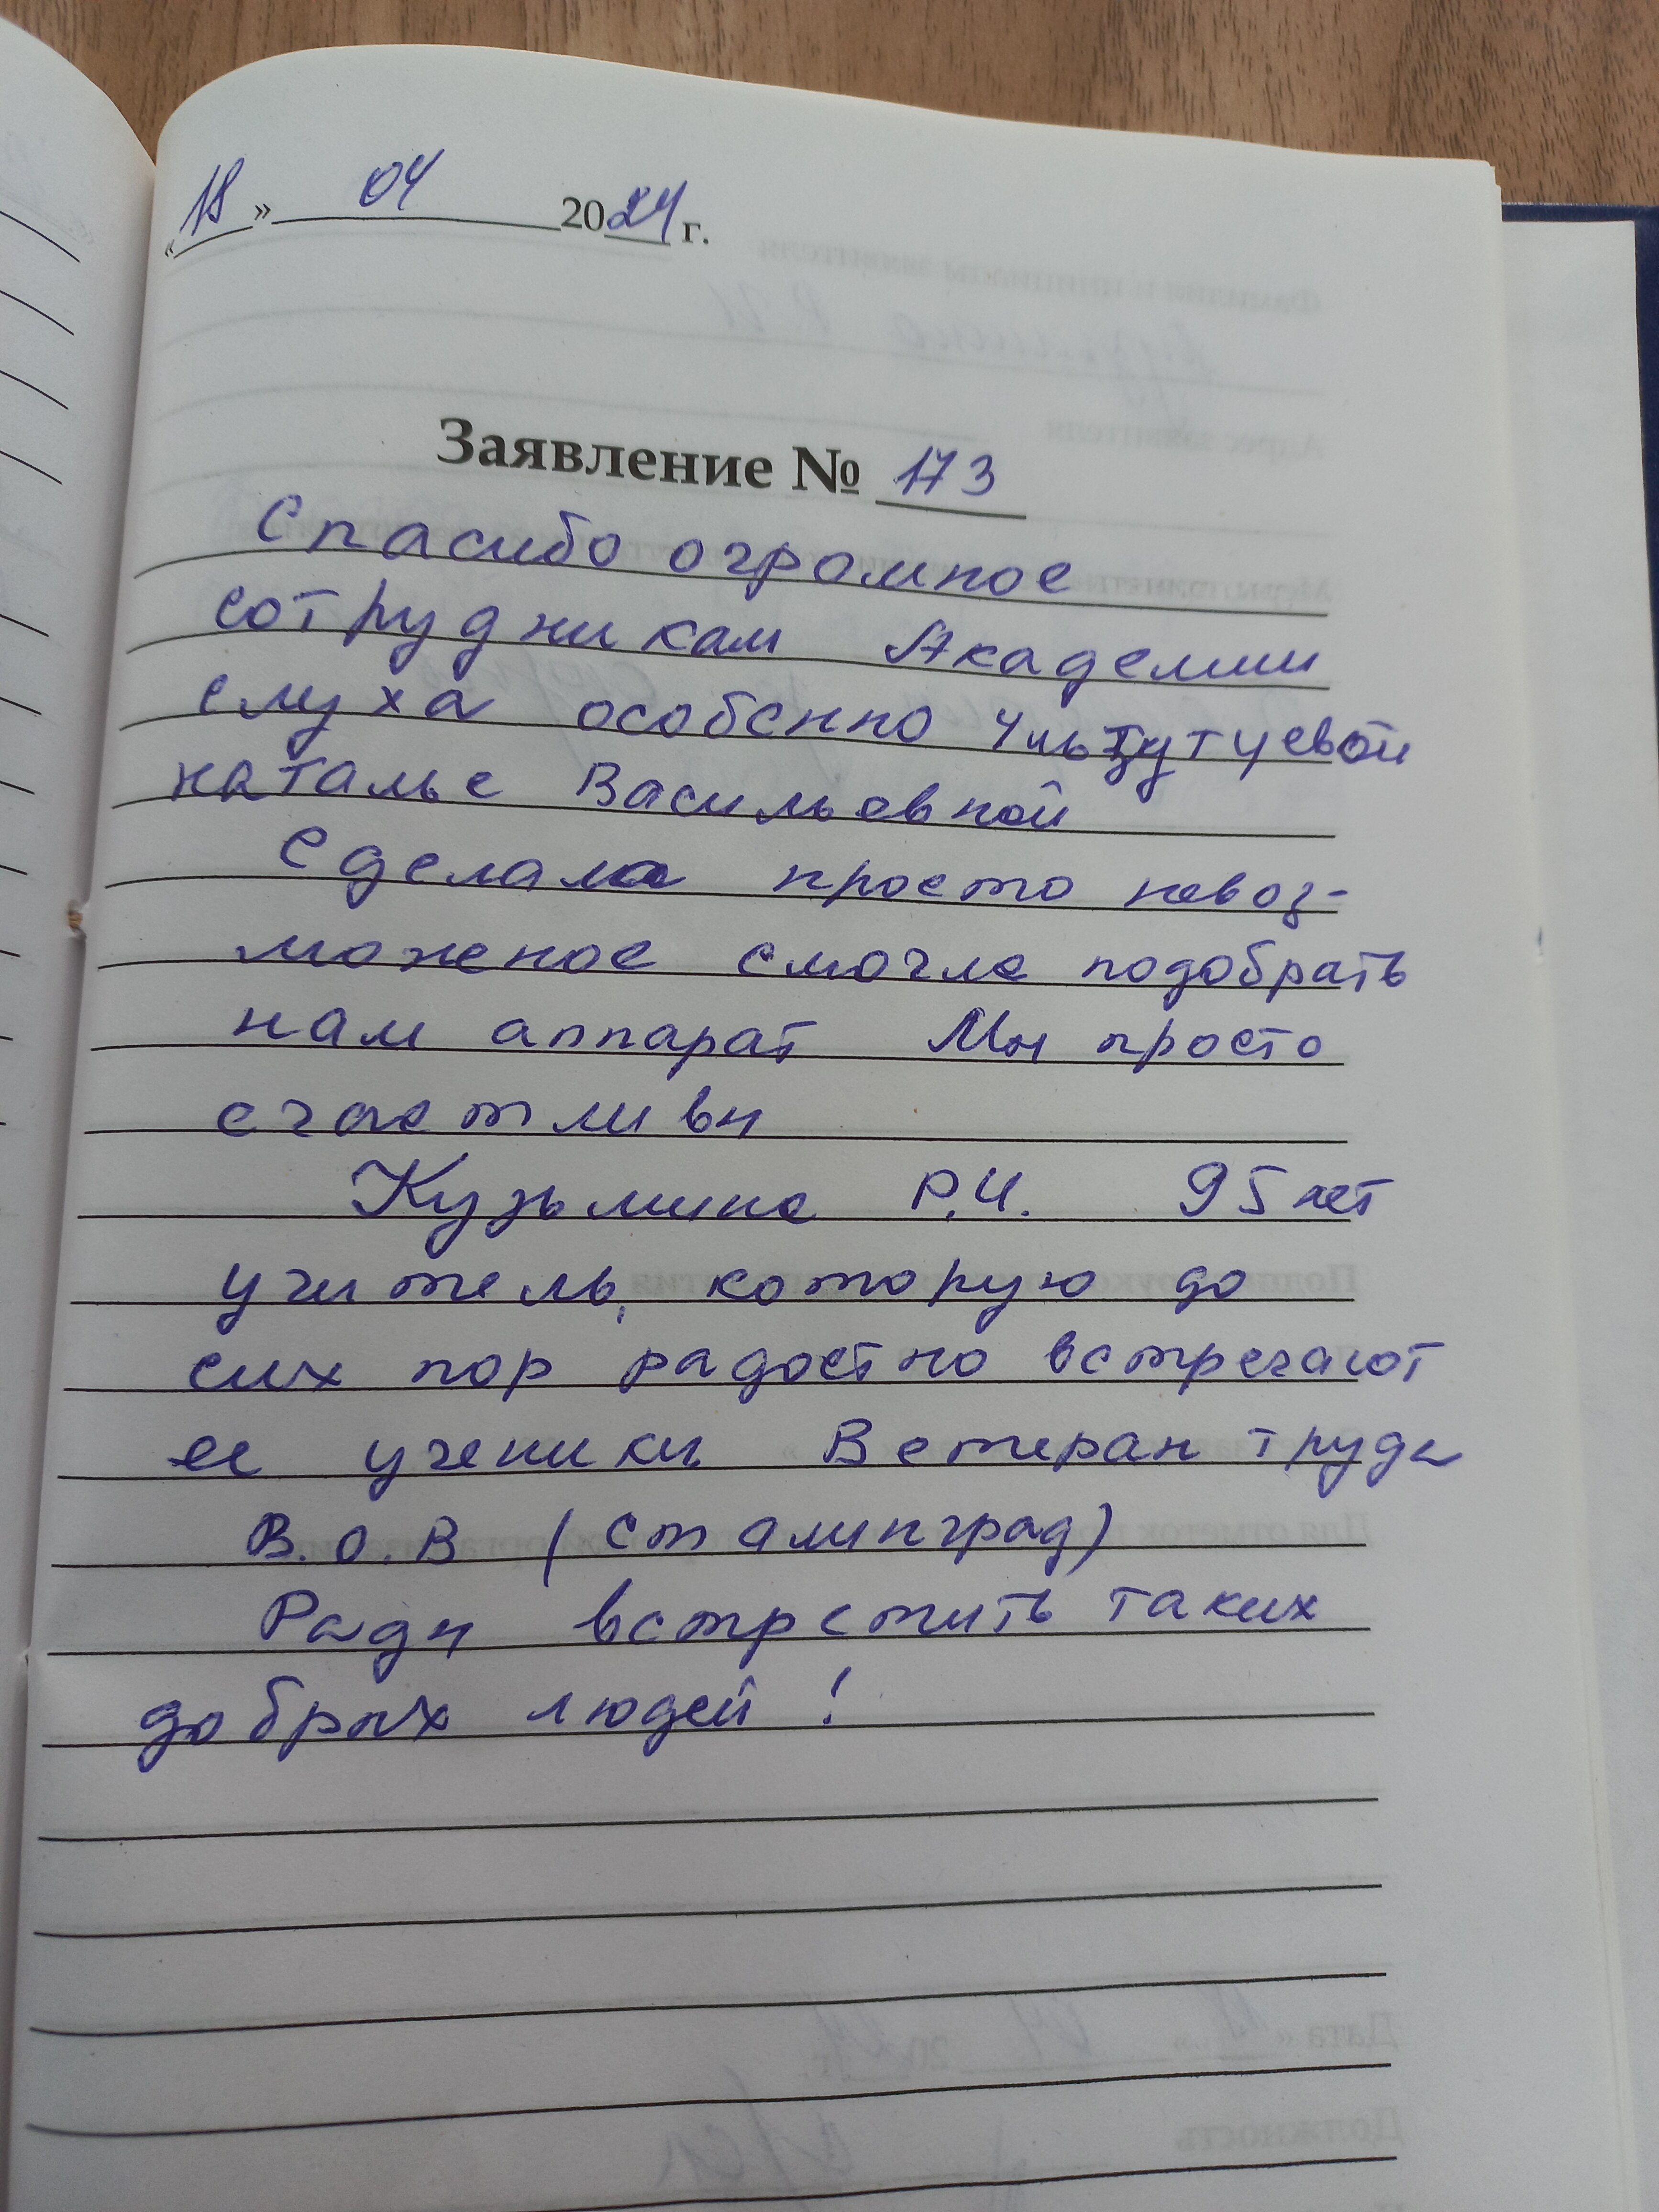 «18» 04 2024 г.
Заявление № 173
Спасибо огромное
сотрудникам Академии
слуха особенно
Наталье Васильевной
Сделала просто невоз-
можное смогла подобрать
нам аппарат Мы просто
счастливы
Кузьмина Р.И. 95 лет
учитель, которую до
сих пор радостно встречают
ее ученики Ветеран труда
В.О.В (Сталинград)
Рады встретить таких
добрых людей!